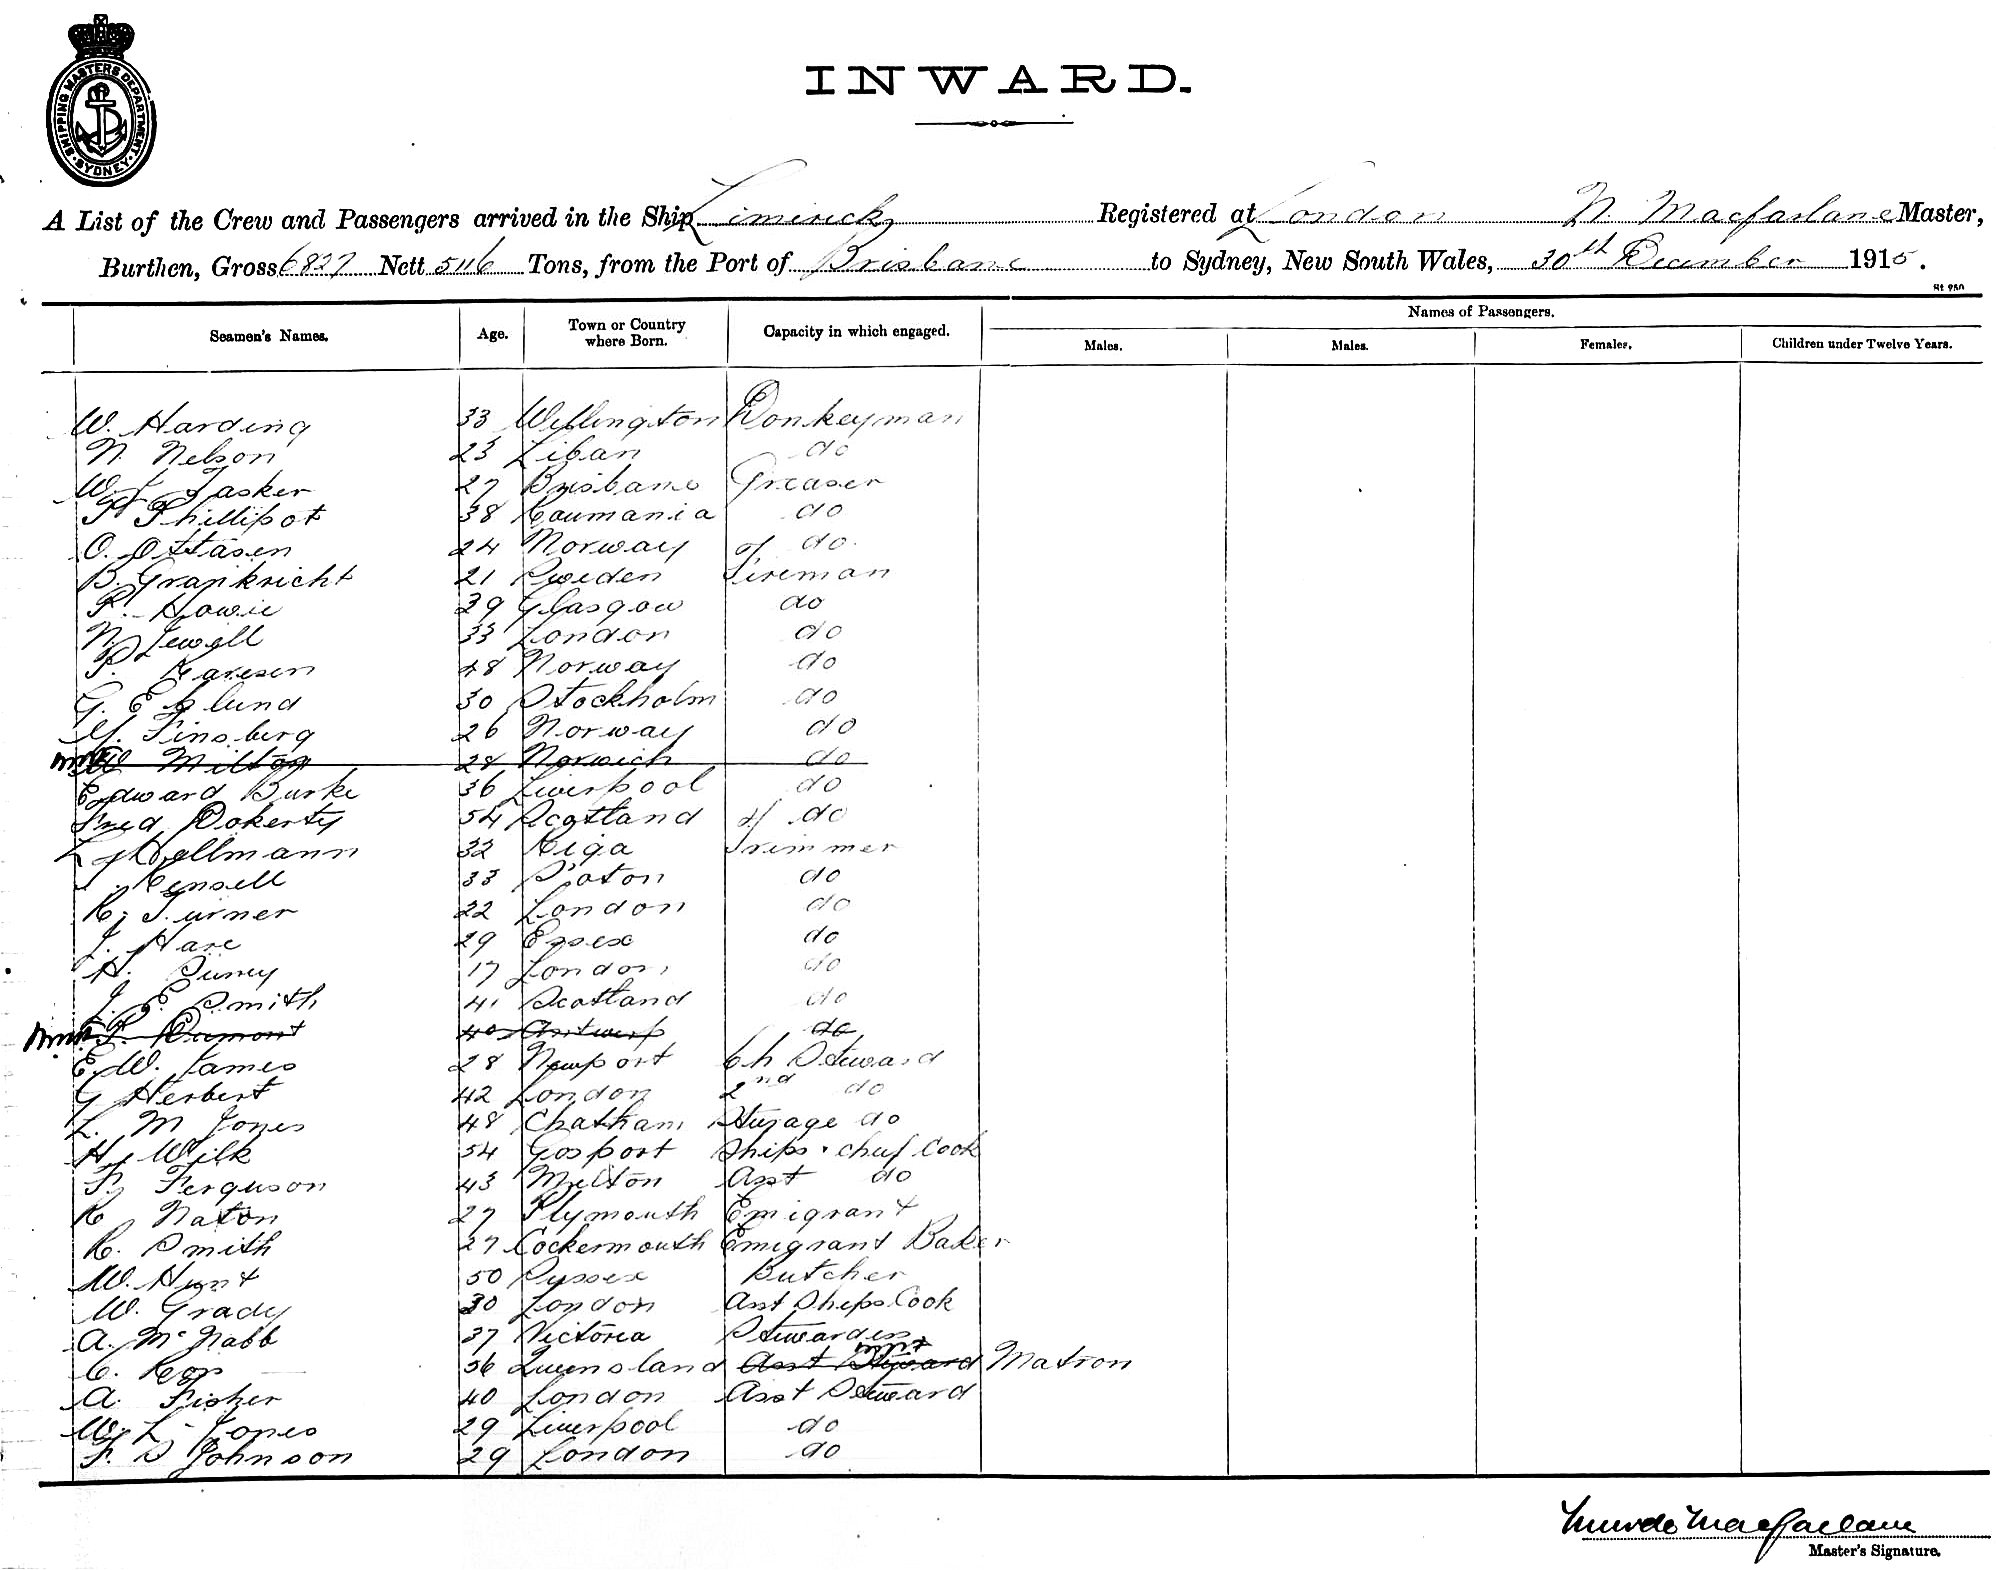 SHIPPING MASTERS DEPARTMENT SYDNEY
INWARD.
A List of the Crew and Passengers arrived in the Ship Limerick Registered at London N. Macfarlane Master,
Burthen, Gross 6827 Nett 5116 Tons, from the Port of Brisbane to Sydney, New South Wales, 30th December 1915.
St 950
Seamen's Names. Age. Town or Country where Born. Capacity in which engaged. Names of Passengers.
Males. Males. Females. Children under Twelve Years.
W. Harding 33 Wellington Donkeyman
N. Nelson 23 Liban do
W. Tasker 27 Brisbane Greaser
Phillipot 38 Roumania do
O. Ottasen 24 Norway do.
B. Grapkricht 21 Sweden Fireman
P. Howie 29 Glasgow do
N. Jewell 33 London do
P. Karesen 28 Norway do
G. Eklund 30 Stockholm do
M. Finsberg 26 Norway do
Milton 28 Norwich do
Edward Burke 36 Liverpool do
Fred Dokerty 54 Scotland do
Kellmann 32 Riga Trimmer
Hensell 33 do
R. Turner 22 London do
J. Hare 29 Essex do
H. 17 London do
J. E. Smith 41 Scotland do
F. 40 Antwerp do
E. W. James 28 Newport Ch Steward
G Herbert 42 London 2nd do
L. M Jones 48 Chatham do
H. Wilk 54 Gosport Ships chief Cook
F. Ferguson 43 Milton Asst do
R Naton 27 Plymouth Emigrant
R. Smith 27 Cockermouth Emigrant Baker
W. Hunt 50 Sussex Butcher
W. Grady 30 London Asst Ships Cook
A. McNabb 37 Victoria Stewardess
C. 56 Queensland Asst Steward Matron
A. Fisher 40 London Asst Steward
W. L. Jones 29 Liverpool do
F. S Johnson 29 London do
Murdo Macfarlane
Master's Signature.